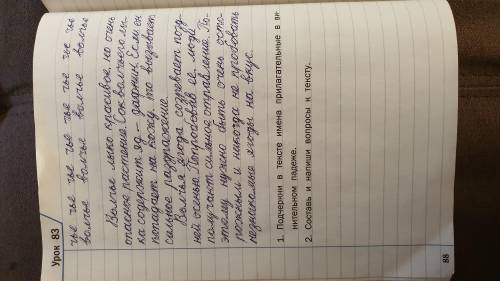 Урок 83
чье чье чье чье чье чье чье чье
волчье волчье волчье волчье
Волчье лыко красивое, но очень
опасное растение. Сок волчьего лы-
ка содержит яд – дафнин. Если он
попадает на кожу, то вызывает
сильное раздражение.
Волчья ягода созревает позд-
ней осенью. Попробовав её, люди
получают сильное отравление. По-
этому нужно быть очень осто-
рожным и никогда не пробовать
незнакомые ягоды на вкус.
1. Подчеркни в тексте имена прилагательные в ви-
нительном падеже.
2. Составь и напиши вопросы к тексту.
88